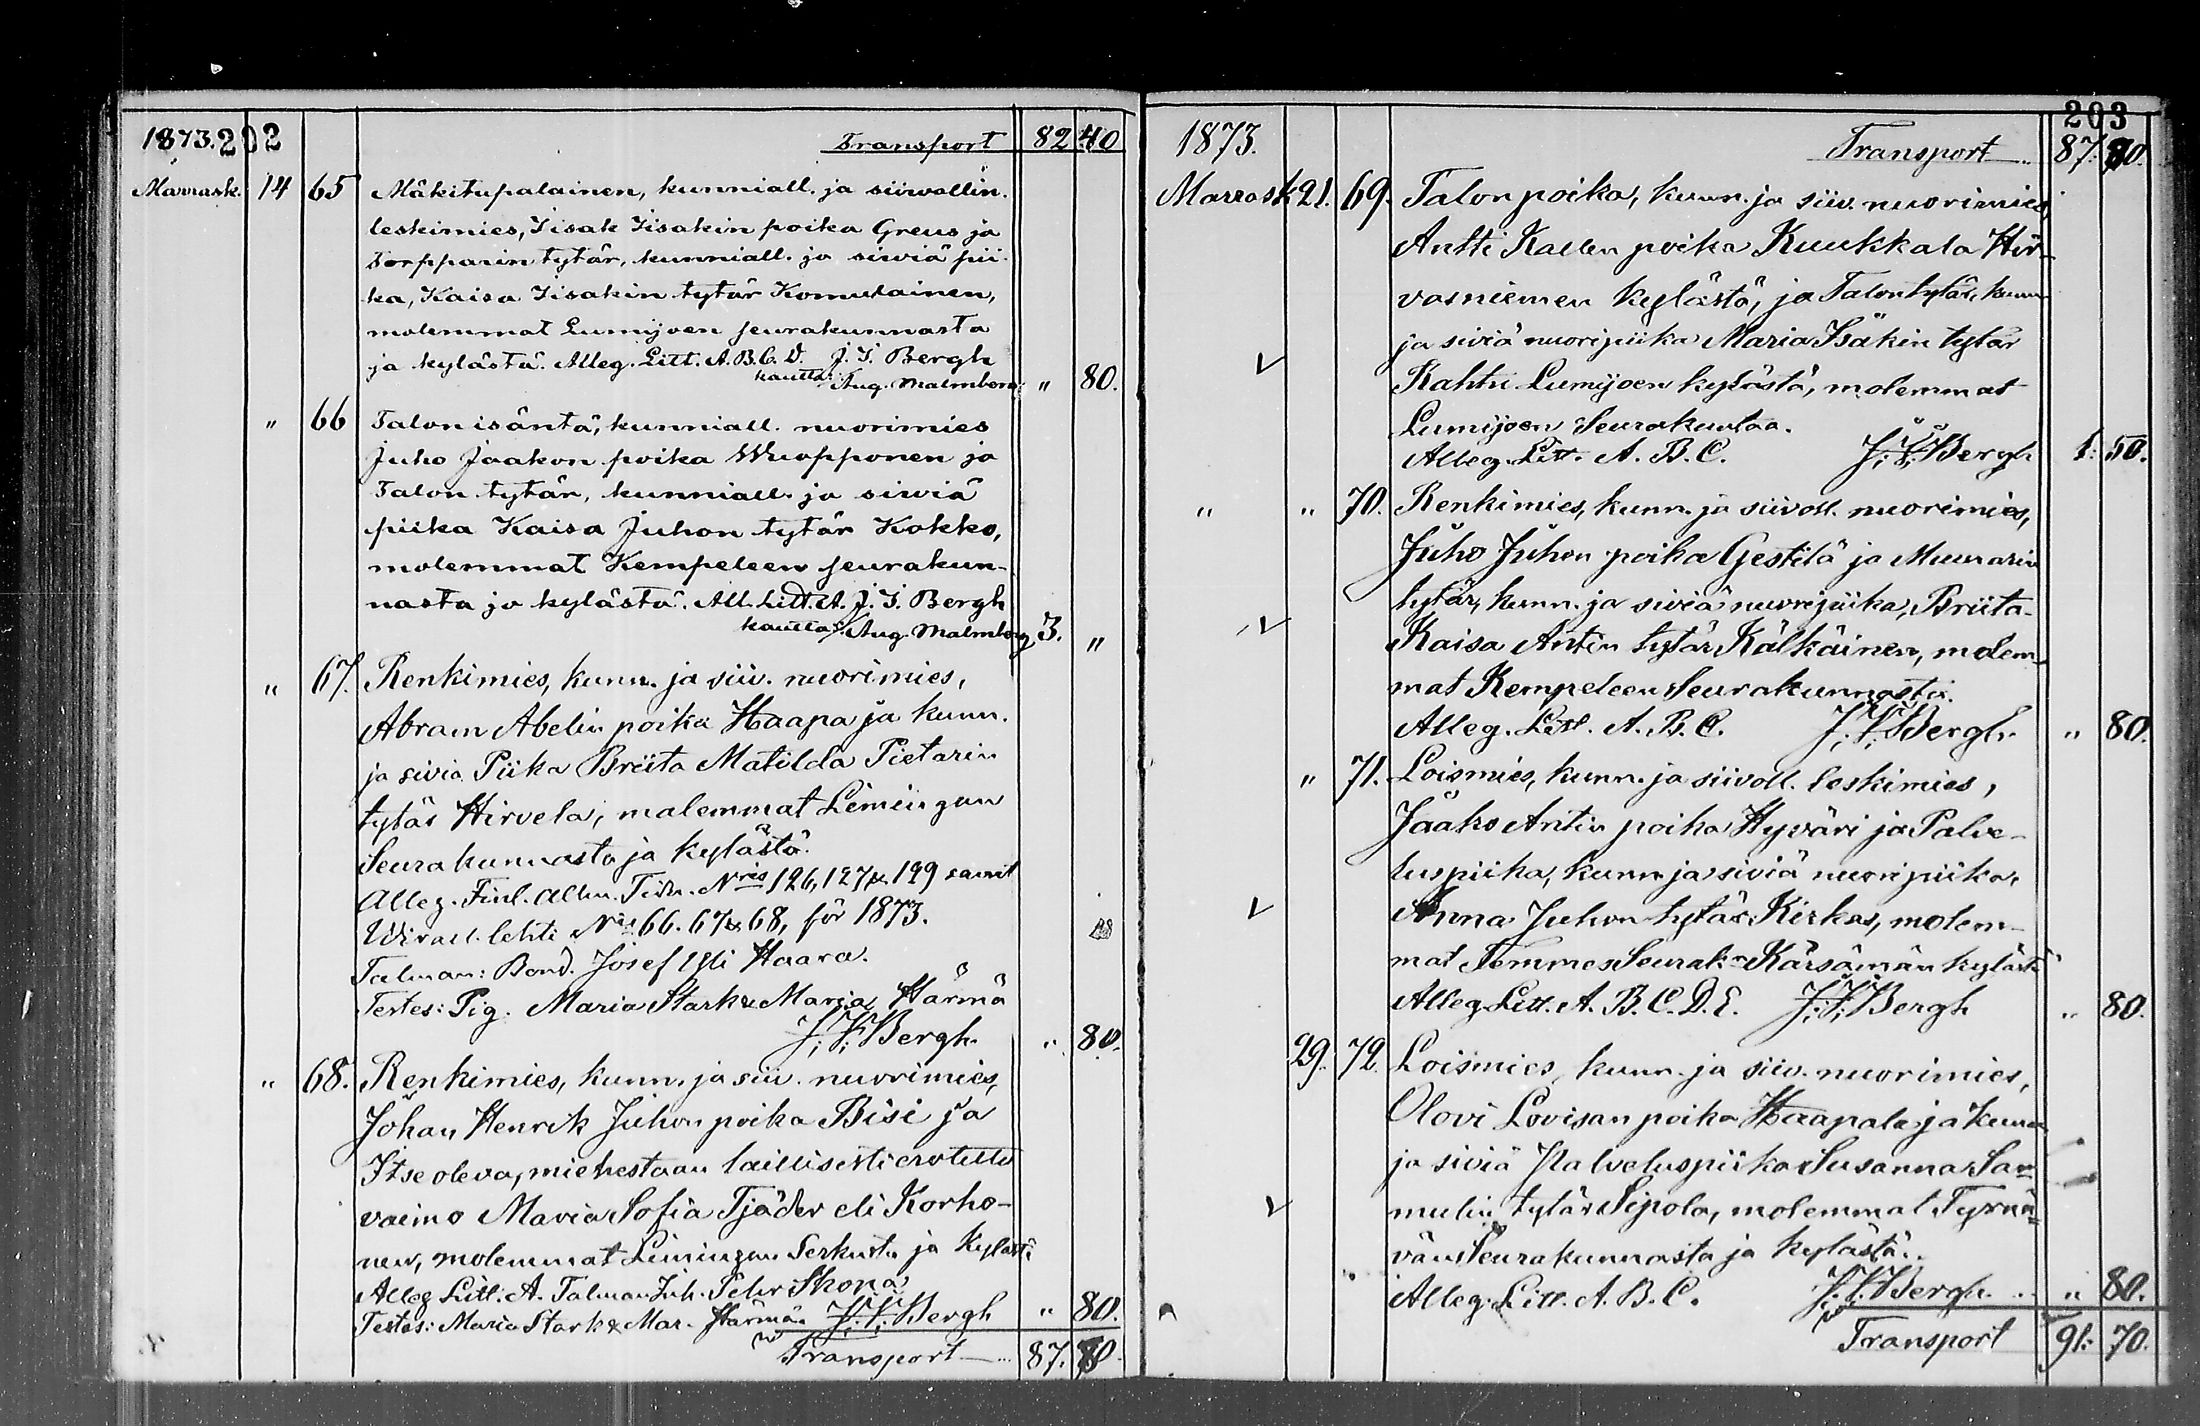 1873. 202 Transport 82 40
Marrask. 14 65 Mäkitupalainen, kunniall. ja siiwollin.
leskimies, Iisak Iisakin poika Greus ja
Torpparin tytär, kunniall. ja siwiä pii-
ka, Kaisa Iisakin tytär Komulainen,
molemmat Lumijoen seurakunnasta
ja kylästä. Alleg. Litt. A. B. C. D. J. I. Bergh
kautta: Aug. Malmberg " 80.
" 66 Talon isäntä, kunniall. nuorimies
Juho Jaakon poika Wuopponen ja
Talon tytär, kunniall. ja siwiä
piika Kaisa Juhon tytär Kokko,
molemmat Kempeleen seurakun-
nasta ja kylästä. All. Litt. A. J. I. Bergh
kautta: Aug. Malmberg 3. "
" 67. Renkimies, kunn. ja siiv. nuorimies,
Abram Abelin poika Haapa ja kunn.
ja sivia Piika Briita Matilda Pietarin
tytär Hirvela, malemmat Limingan
Seurakunnasta ja kylästä.
Alleg. Finl. Allm. Tidn. Nris 126, 127 & 129 samt
Wirall. lehti Nris 66. 67 & 68, för 1873.
Talman: Bond. Josef Haara.
Testes: Pig. Maria Stark & Maria Härmä
J. I. Bergh. " 80.
" 68. Renkimies, kunn. ja siiv. nuorimies,
Johan Henrik Juhon poika Bisi ja
Itse oleva, miehestaan laillisesti erotettu
vaimo Maria Sofia Tjäder eli Korho-
nen, molemmat Limingan Serkusta ja kylästä
Alleg Litt. A. Talman Joh. Pehr Skona
Testes: Maria Stark & Mar. Härmä. J. I. Bergh " 80.
Transport 87. 80.
203
1873. Transport 87: 80.
Marrask 21. 69. Talonpoika, kunn. ja siiv. nuorimies,
Antti Kallen poika Kuukkala Hir-
vasniemen kylästä, ja Talontytär, kunn
ja siviä nuoripiika Maria Isäkin tytär
Kahtu Lumijoen kylästä, molemmat
Lumijoen Seurakuntaa.
Alleg. Litt. A. B. C. J. I. Bergh 1: 50.
" " 70. Renkimies, kunn. ja siivoll. nuorimies,
Juho Juhon poika Gestilä ja Muurarin
tytär, kunn. ja siviä nuoripiika, Briita-
Kaisa Antin tytär Kälkäinen, molem-
mat Kempeleen Seurakunnasta.
Alleg. Litt. A. B. C. J. I. Bergh. " 80.
" 71. Loismies, kunn. ja siivoll. leskimies,
Jaako Antin poika Hyväri ja Palve-
luspiika, kunn ja siviä nuoripiika,
Anna Juhon tytär Kirkas, molem-
mat Temmes Seurak:n Kärsämän kylästä
Alleg. Litt. A. B. C. D. E. J. I. Bergh " 80.
29. 72. Loismies, kunn. ja siiv. nuorimies,
Olovi Lovisan poika Haapala ja kunn
ja siviä Palveluspiika Susanna Sa-
mulin tytär Sipola, molemmat Tyrnä-
vän Seurakunnasta ja kylästä.
Alleg. Litt. A. B. C. J. I. Bergh. " 80.
Transport 91: 70.